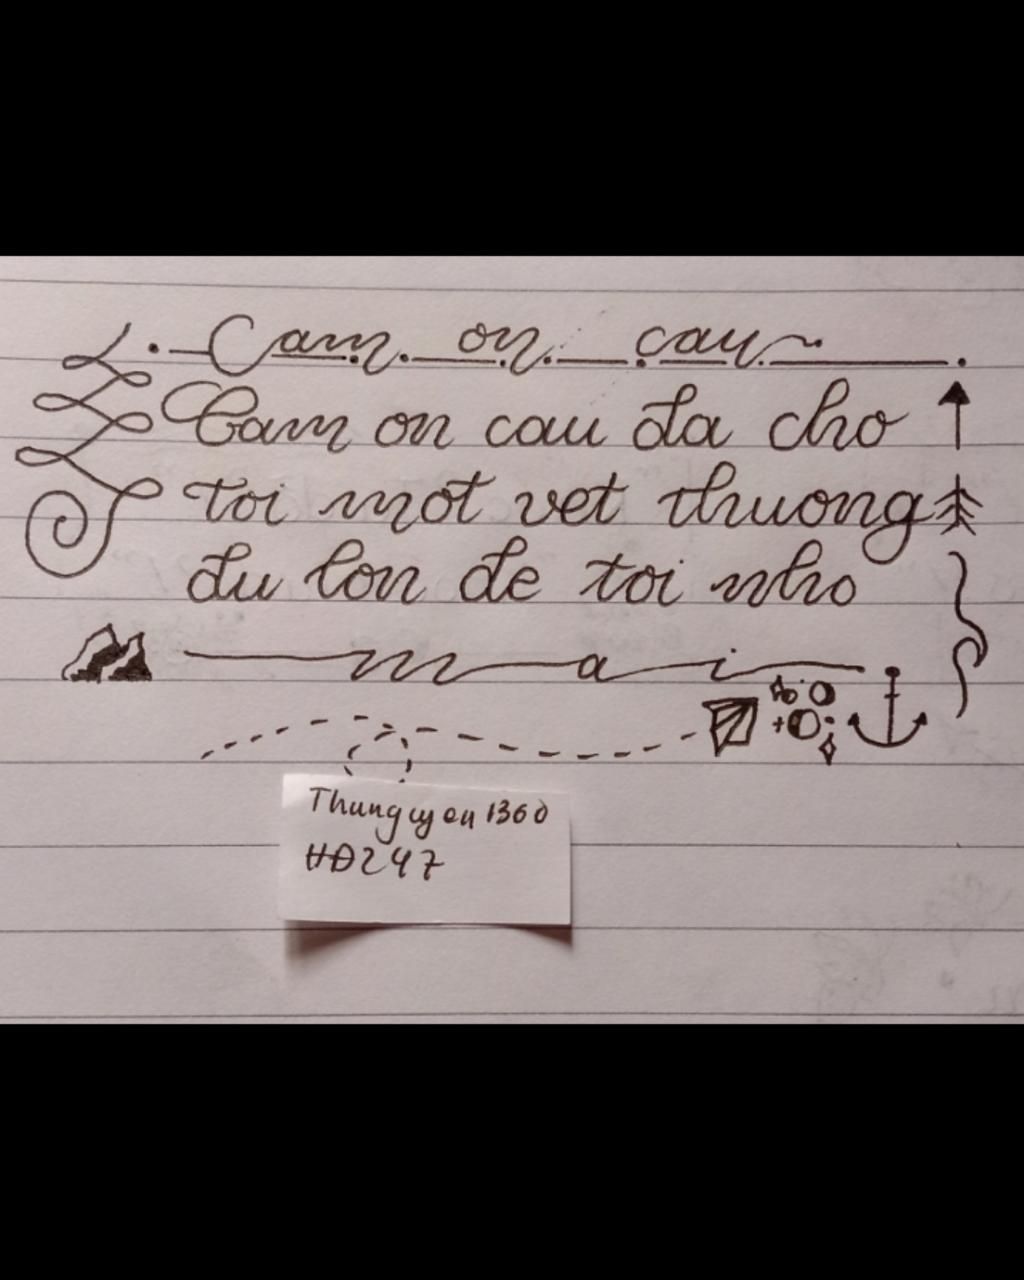 Cam on cau
Cam on cau da cho
toi mot vet thuong
du lon de toi nho
mai
Thunguyen1360
HD247